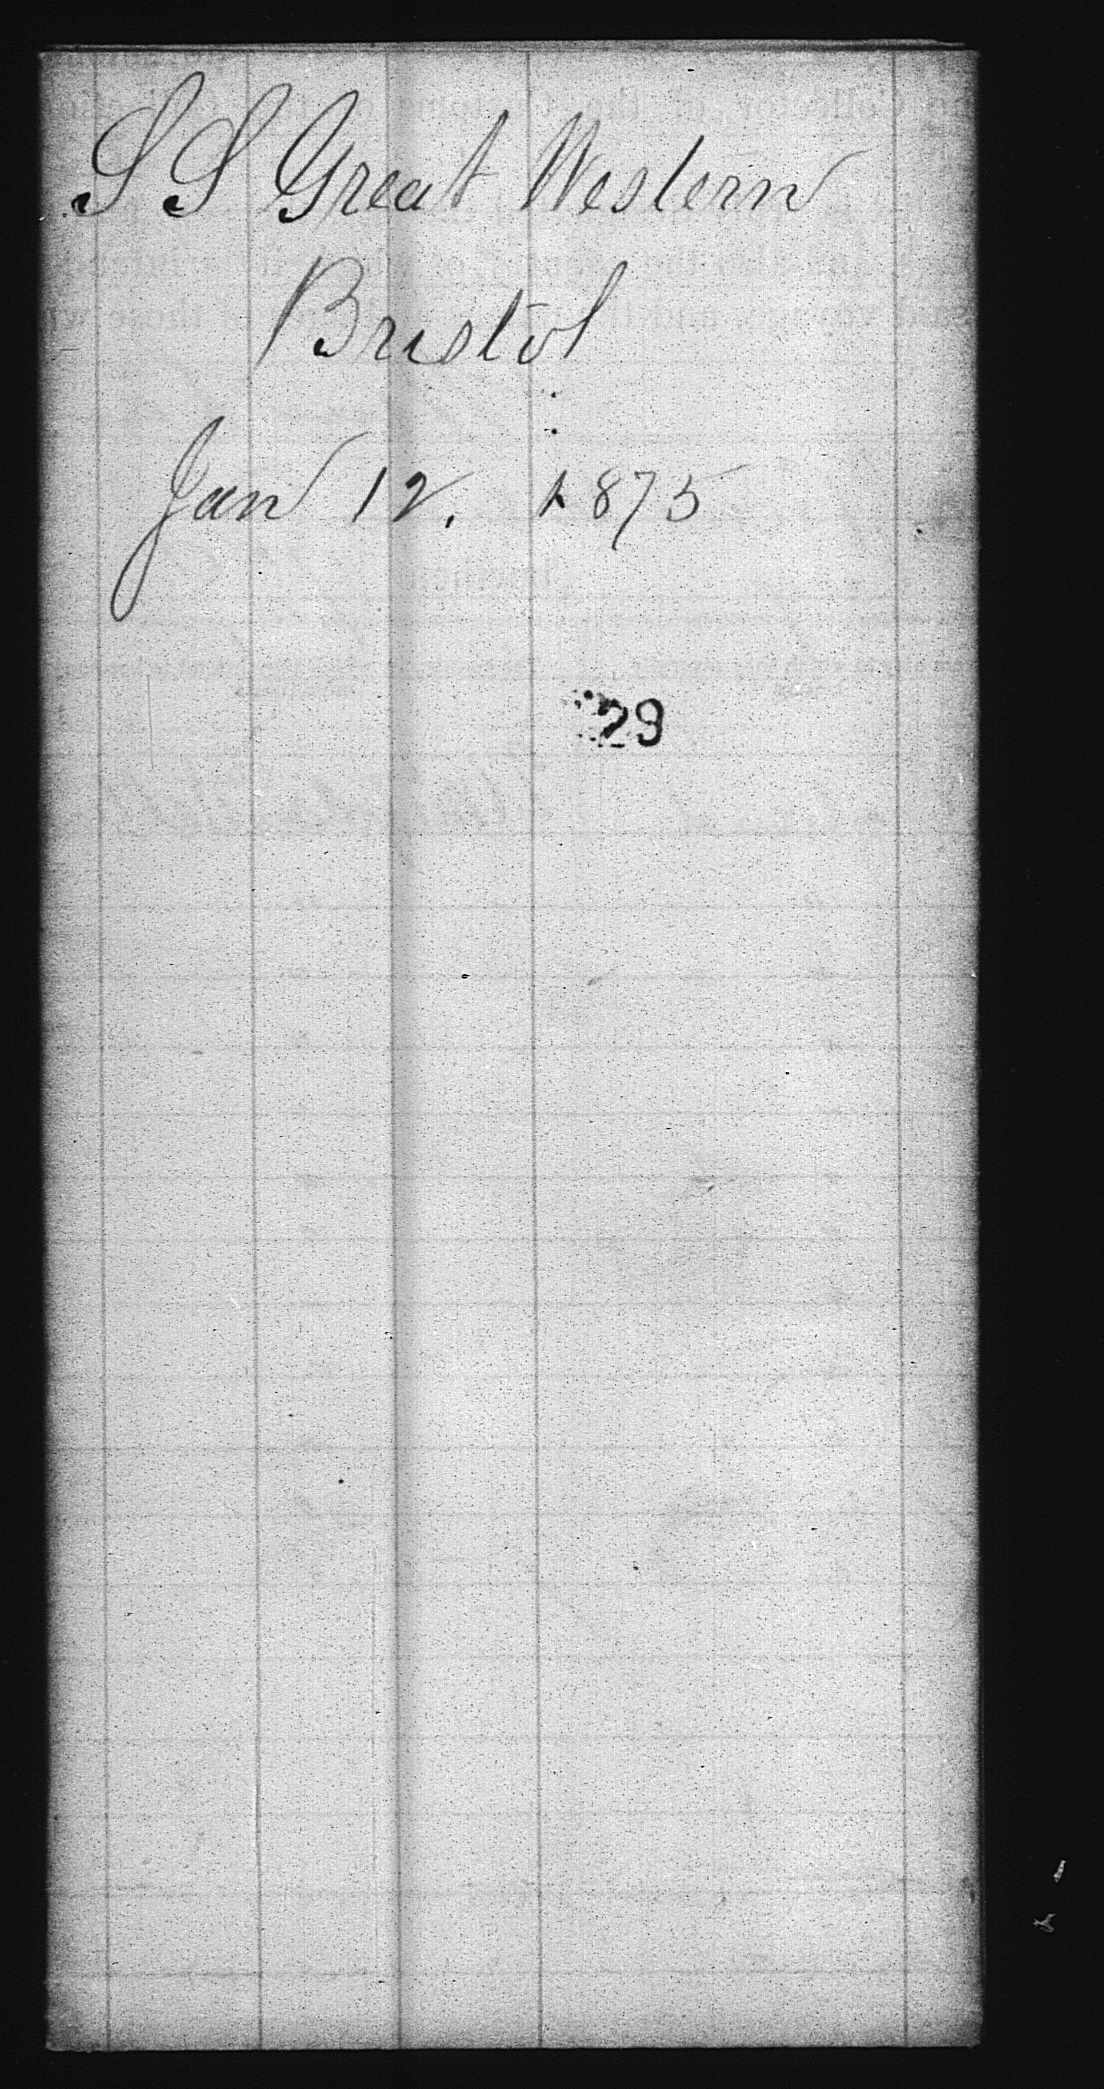 S S Great Western
Bristol
Jan 12. 1875
29